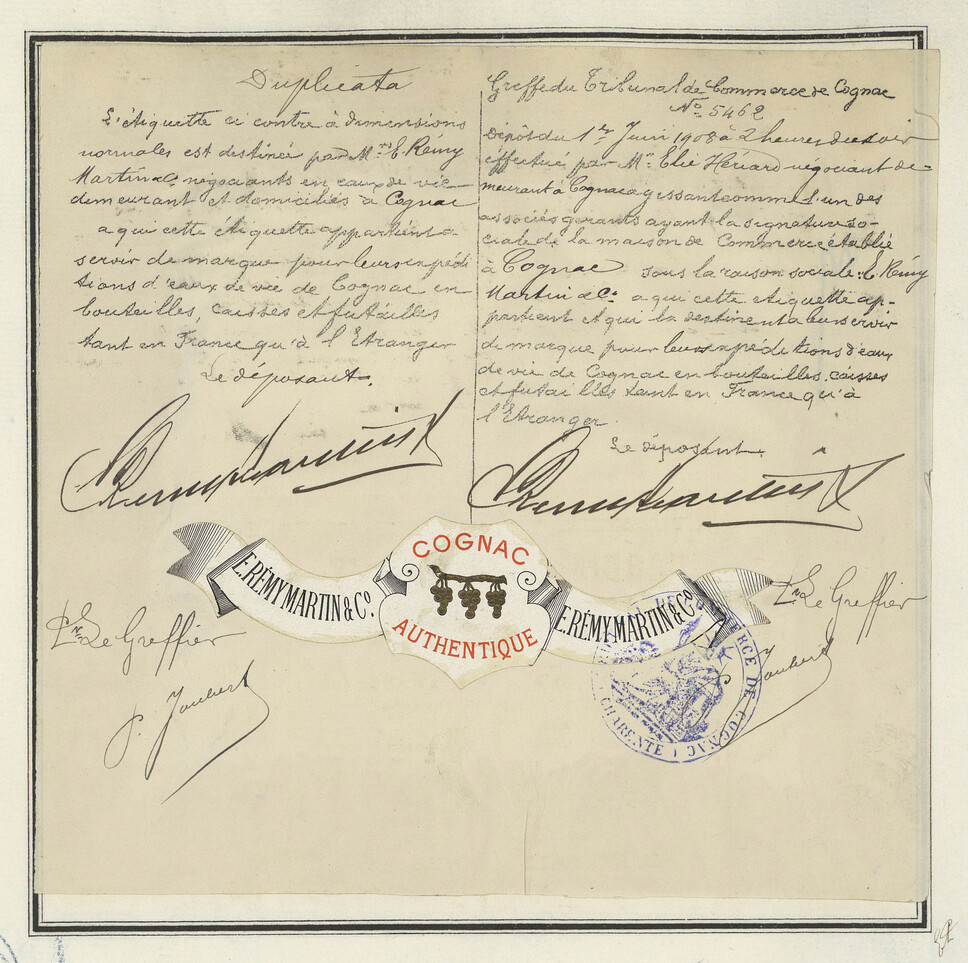 Duplicata
L'étiquette ci contre à dimensions
normales est destinée par Mrs E. Rémy
Martin & Co. négociants en eaux de vie
demeurant et domiciliés à Cognac
a qui cette étiquette appartient a
servir de marque pour leurs expédi
tions d'eaux de vie de Cognac en
bouteilles, caisses et futailles
tant en France qu'à l'Etranger
Le déposant.
E Remy Martin & Co
Greffe du Tribunal de Commerce de Cognac
No. 5462
Dépôt du 1er Juin 1908 à 2 heures du soir
éffectué par Mr. Elie Hériard négociant de-
meurant à Cognac agissant comme l'un des
associés gérants ayant la signature so-
ciale de la maison de Commerce établie
à Cognac sous la raison sociale: E. Rémy
Martin & Co. a qui cette etiquette ap-
partient et qui la destinent a leur servir
de marque pour leurs expéditions d'eaux
de vie de Cognac en bouteilles, caisses
et futailles tant en France qu'à
l'Etranger.
Le déposant.
E Remy Martin & Co
E. RÉMY MARTIN & Co.
COGNAC
AUTHENTIQUE
E. RÉMY MARTIN & Co.
Le Greffier
P. Joubert
Le Greffier
P. Joubert
ERCE DE COGNAC
(CHARENTE)